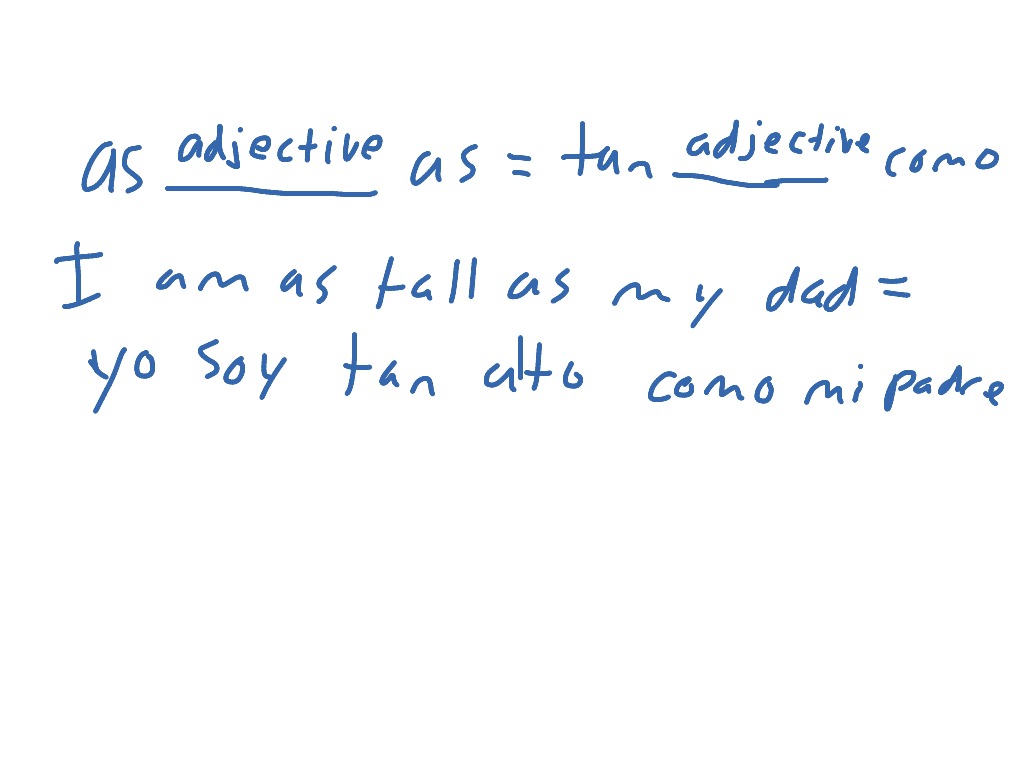 as adjective as = tan adjective como
I am as tall as my dad =
yo soy tan alto como mi padre